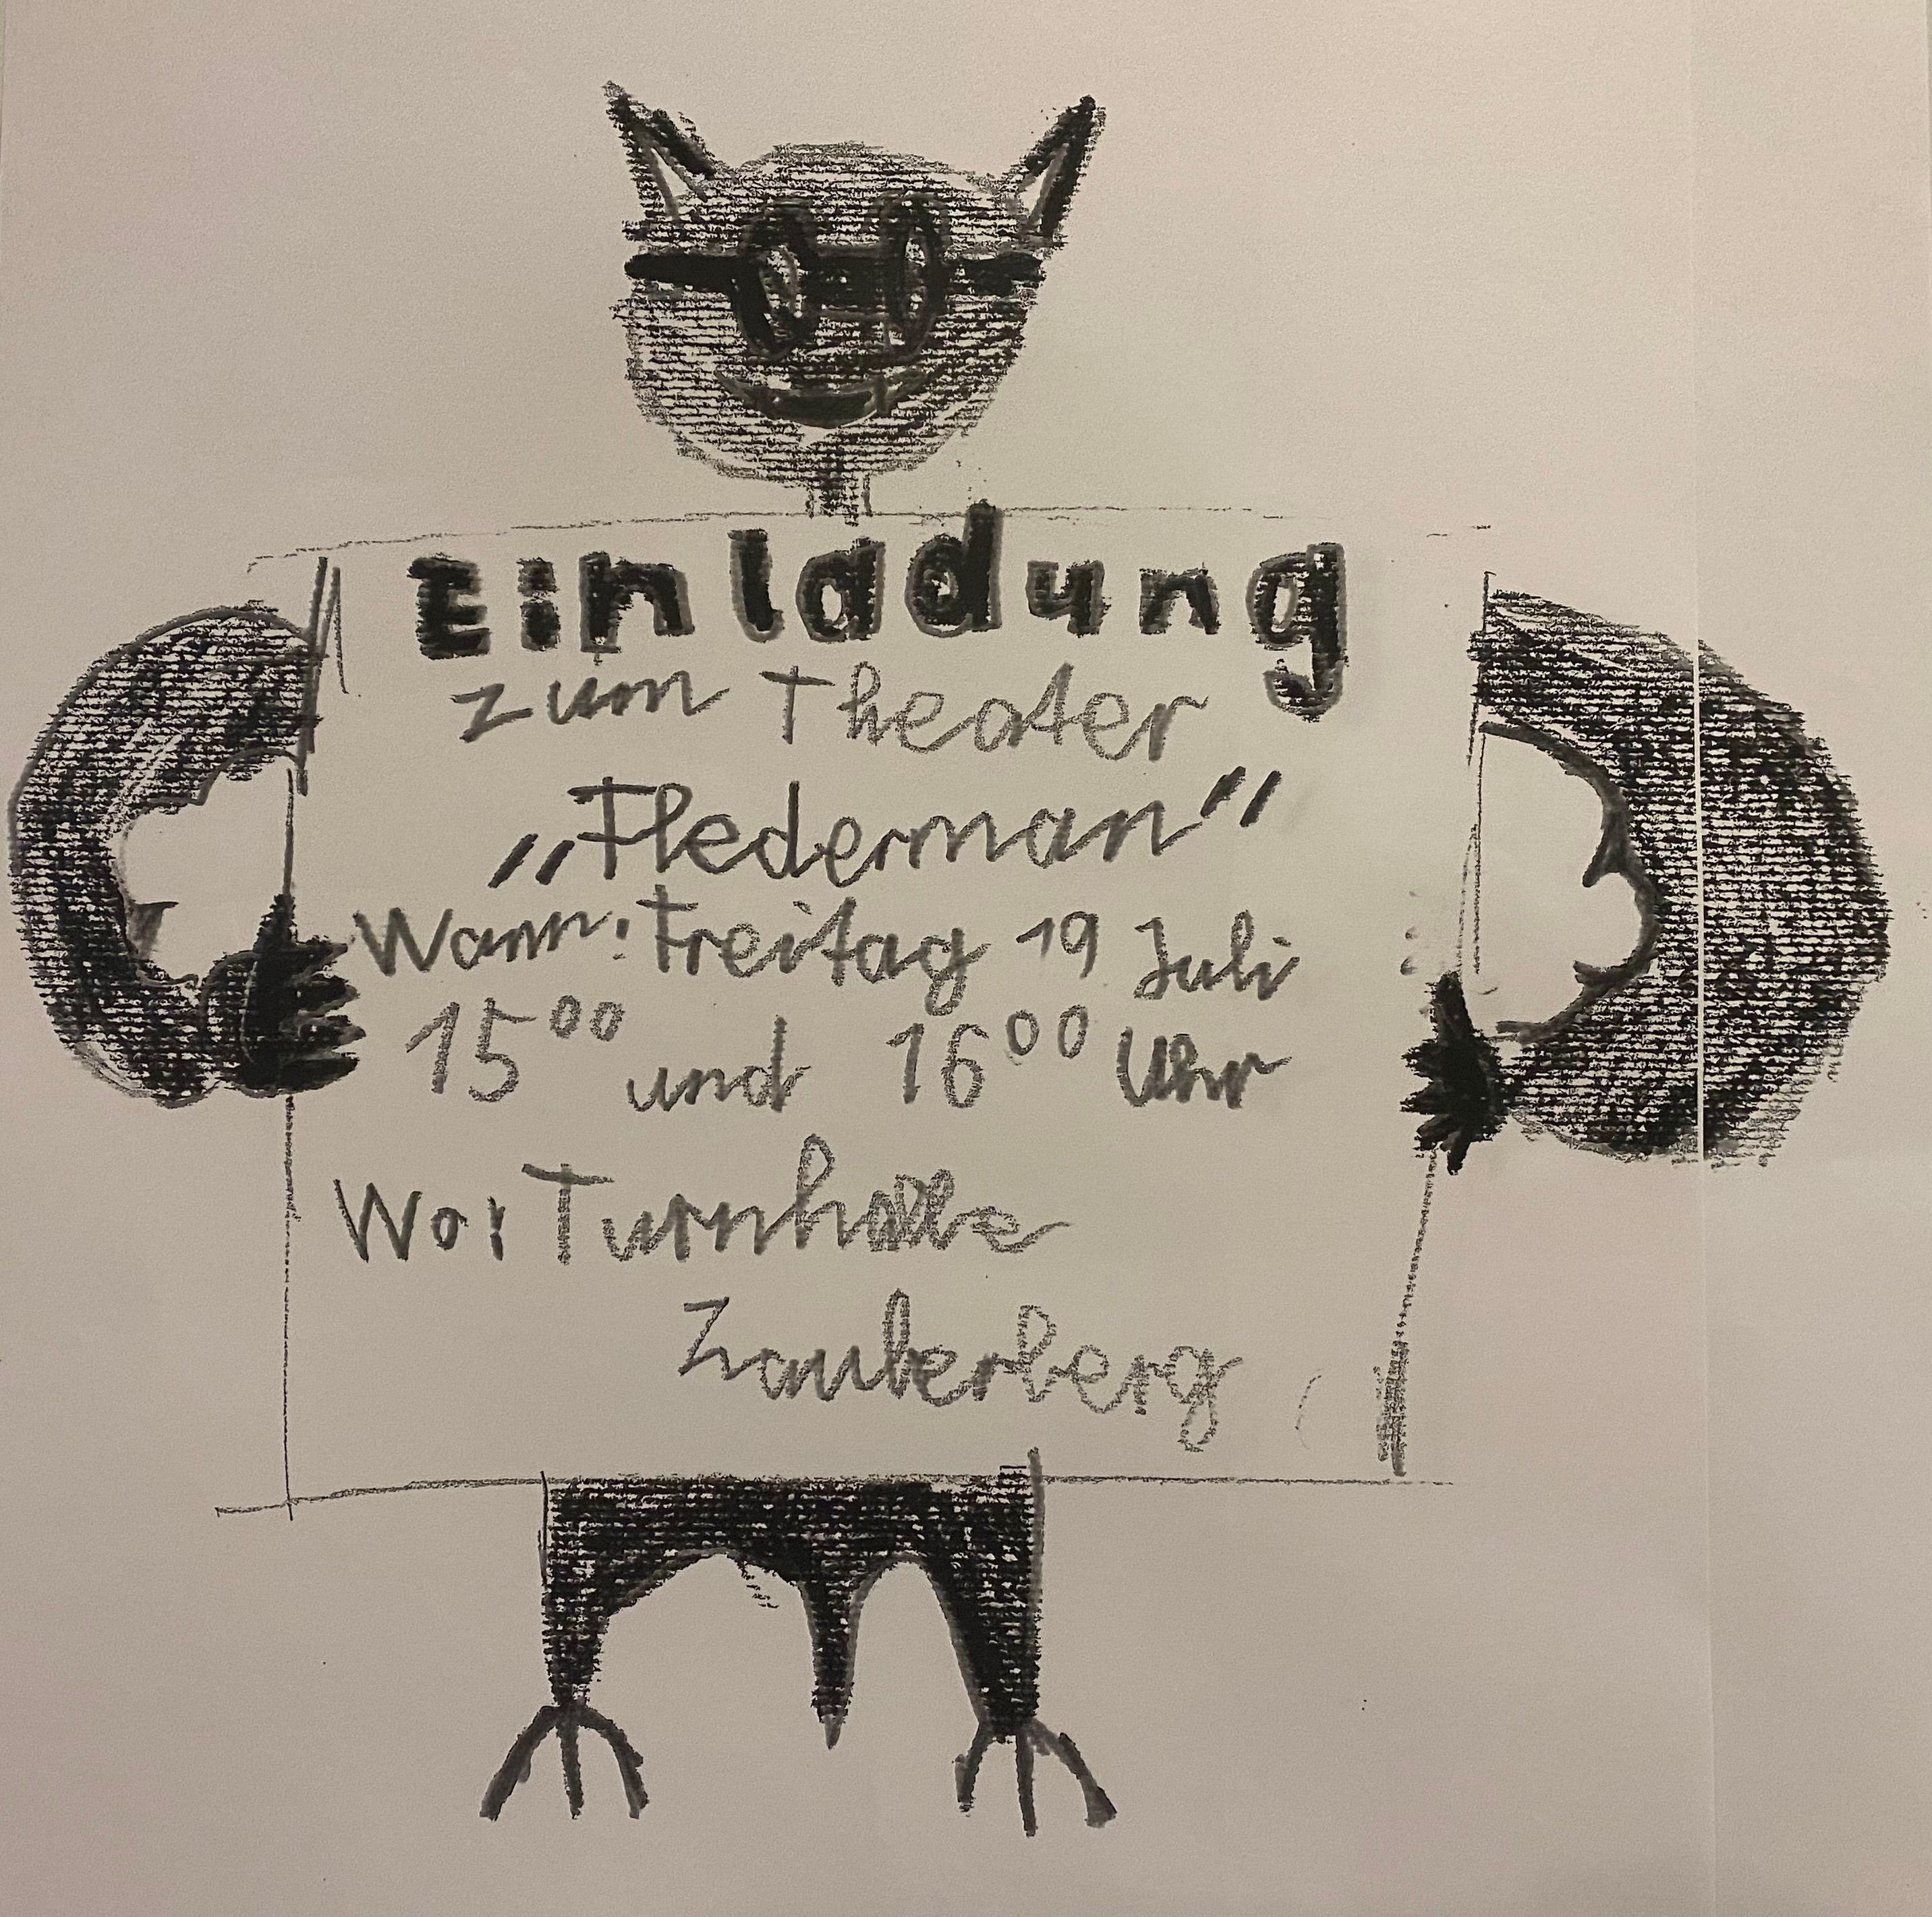 Einladung
zum Theater
„Flederman"
Wann: Freitag 19 Juli
15⁰⁰ und 16⁰⁰ Uhr
Wo: Turnhalle
Zauberberg